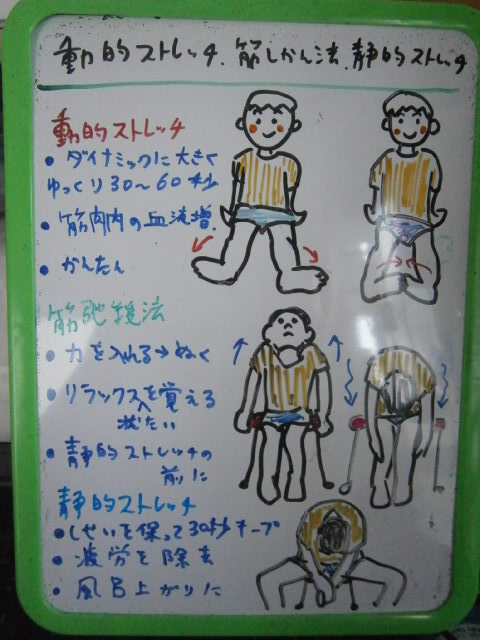 動的ストレッチ、筋しかん法、静的ストレッチ
動的ストレッチ
・ダイナミックに大きく
ゆっくり30～60秒
・筋肉内の血流増、
・かんたん
筋弛援法
・力を入れる→ぬく
・リラックスを覚える
状たい
・静的ストレッチの
前に
静的ストレッチ
・しせいを保って30秒キープ
・疲労を除去
・風呂上がりに